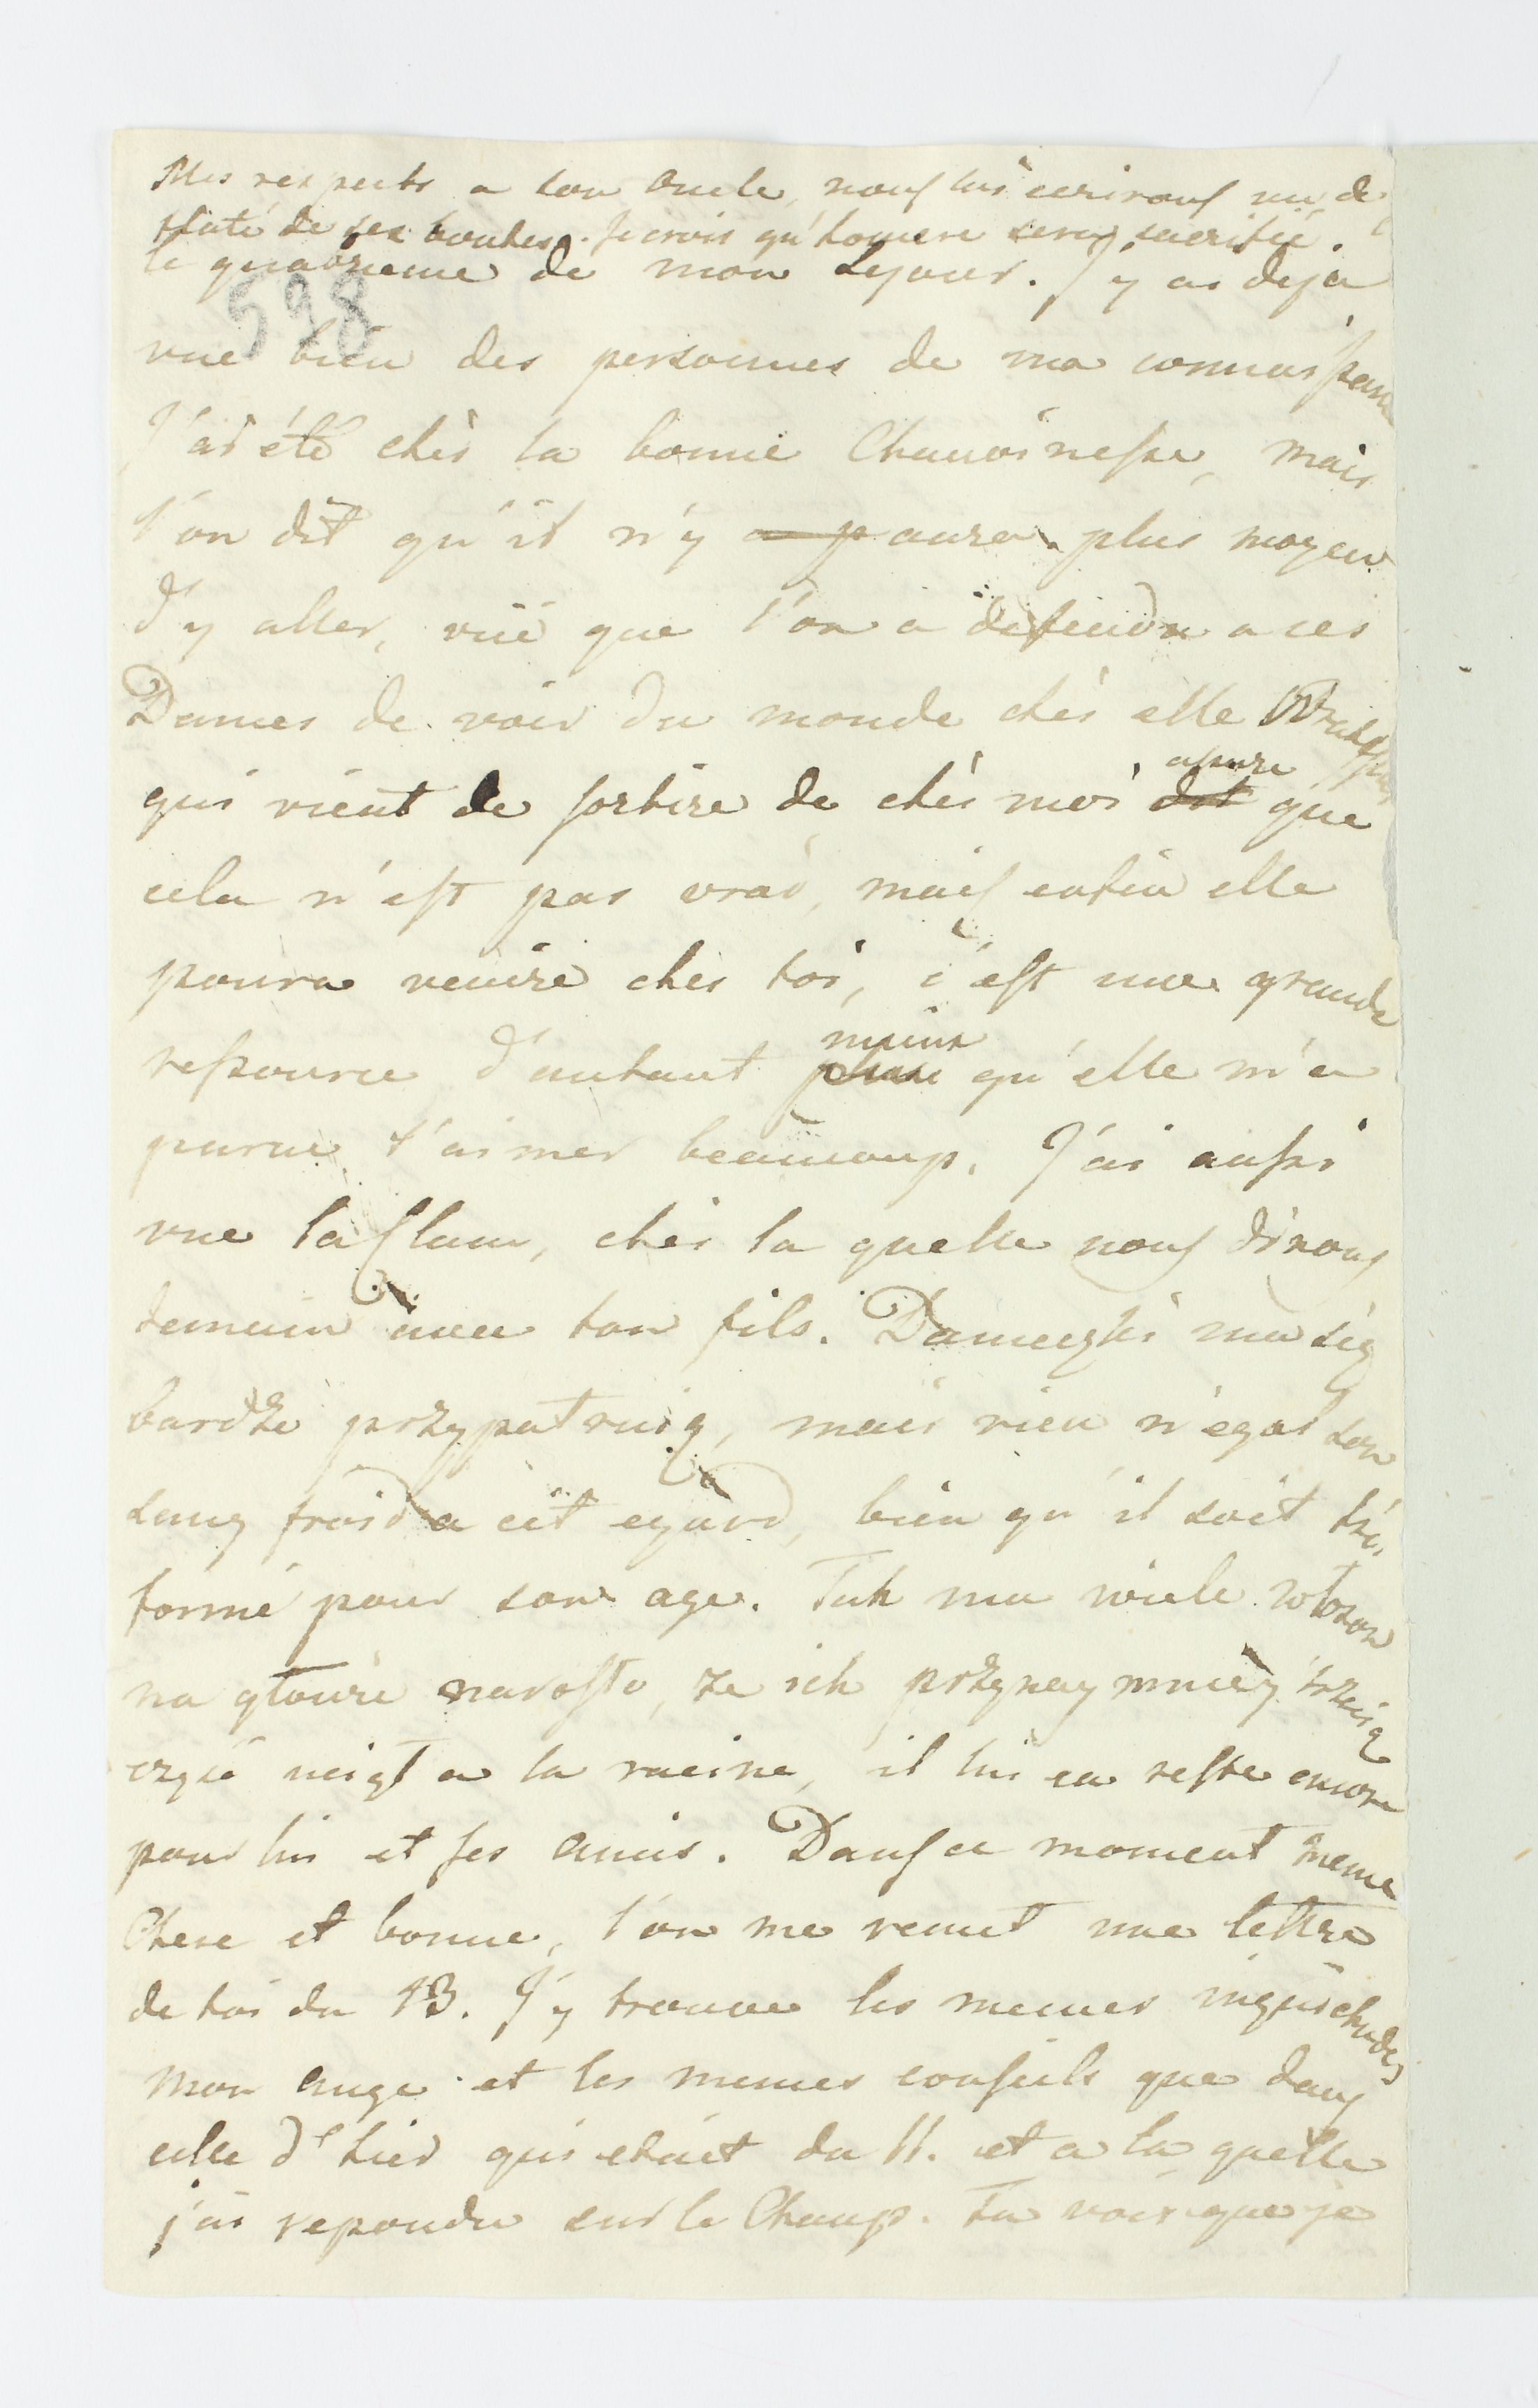 Mes respects a ton oncle, nous lui ecrirons
de ses bontés. Je crois qu'homere sera sacrifié.
le quatrieme de mon sejour. J'y ai deja
598
vue bien des personnes de ma connaissan
J'ai été chés la bonne Chanoinesse, mais
l'on dit qu'il n'y aura plus moyen
d'y aller, vüe que l'on a defendu a ces
Dames de voir du monde chés elle
qui vient de sortire de chés moi dit assure que
cela n'est pas vrai, mais enfin elle
poura venire chés toi, c'est une grande
ressource d'autant plus moins qu'elle m'a
parue t'aimer beaucoup. J'ai aussi
vue la chés la quelle nous dinons
demain avec ton fils. Dameczki ma się
bardzo przypatruią, mais rien n'egal son
sang froid a cet egard, bien qu'il soit tré
formé pour son age. Tak ma wiele wlosow
na glowie narosto, ze ich przynaymniey
część wziąl a la racine, il lui en reste encore
pour lui et ses amis. Dans ce moment meme
Chere et bonne, l'on me remet une lettre
de toi du 13. J'y trouve les memes inquietudes
mon ange et les memes conseils que dans
celle d'hier qui etait du 11. et a la quelle
j'ai repondu sur le Champ. Tu vois que je